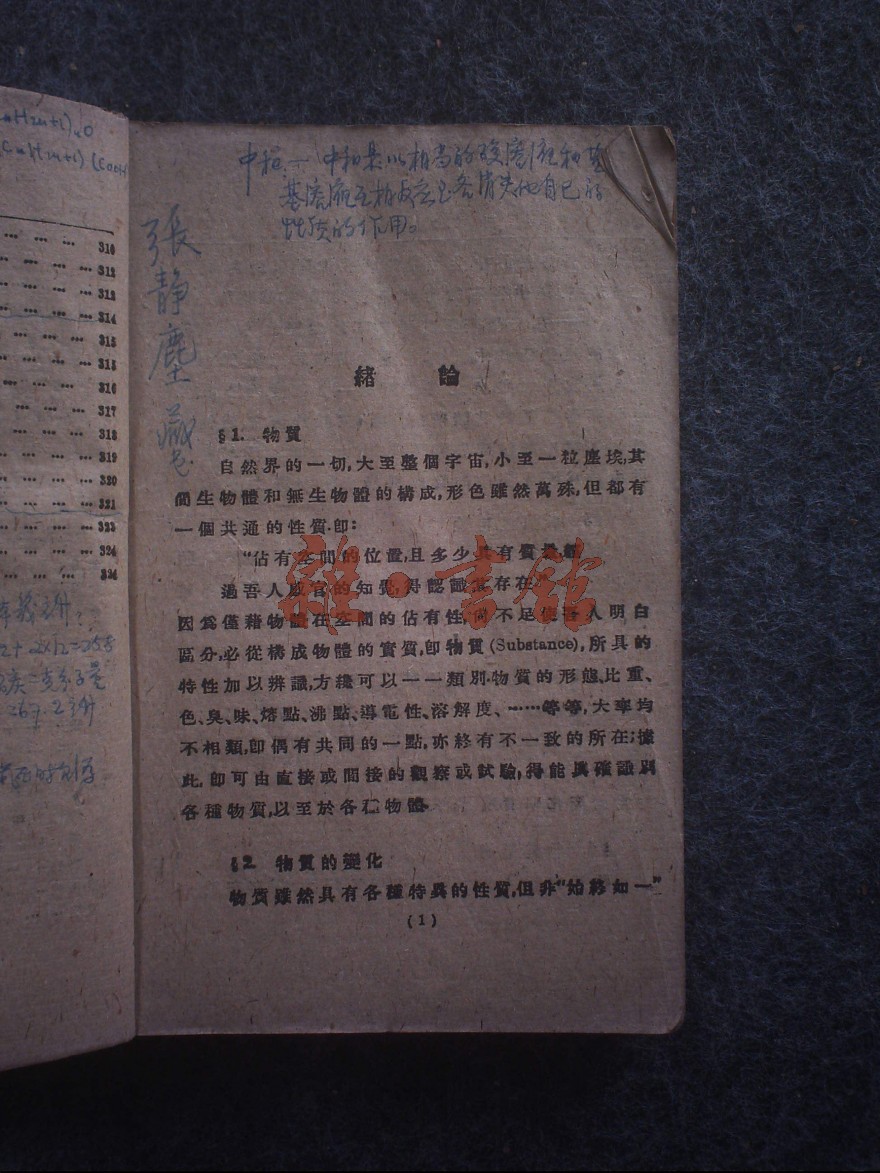 310
312
313
314
315
315
316
317
318
319
320
321
323
324
324
中和是以相當的酸溶液和
基溶液互相反应
性质的作用。
張靜塵藏
緒 論
§1. 物質
自然界的一切,大至整個宇宙,小至一粒塵埃,其
間生物體和無生物體的構成,形色雖然萬殊,但都有
一個共通的性質.卽:
“佔有空間的位置,且多少具有質量,
過吾人感官的知覺,得認識其存在”
因爲僅藉物體在空間的佔有性,尙不足使吾人明白
區分,必從構成物體的實質,卽物質(Substance),所具的
特性加以辨識,方纔可以一一類別.物質的形態、比重、
色、臭、味、熔點、沸點、導電性、溶解度、……等等,大率均
不相類,卽偶有共同的一點,亦終有不一致的所在;據
此,卽可由直接或間接的觀察或試驗,得能與確識別
各種物質,以至於各種物體
§2. 物質的變化
物質雖然具有各種特異的性質,但非“始終如一”
(1)
雜·書館